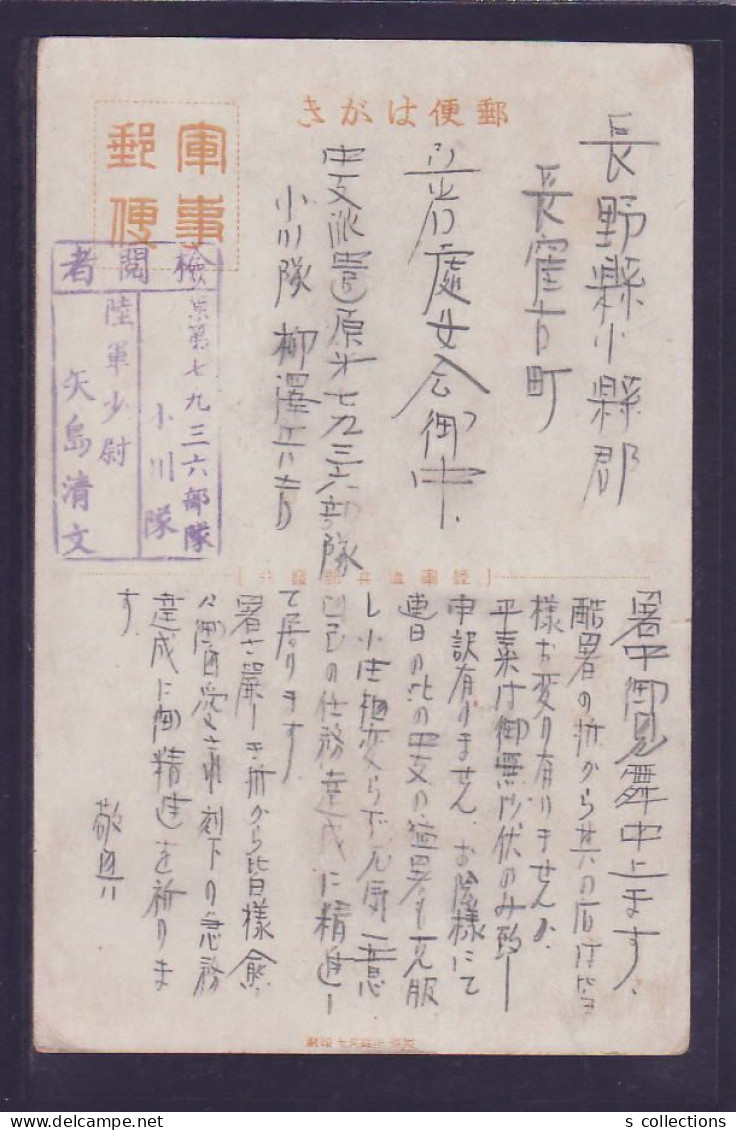 郵便はがき
軍事
郵便
検閲者
第七九三六部隊
小川隊
陸軍少尉
矢島清文
長野縣小縣郡
長窪古町
立岩處女会御中
中支派遣原第七九三六部隊
小川隊 柳澤
暑中御見舞申上ます、
酷暑の折から其の后は皆
様お変り有りませんか、
平素は御無沙伏のみ致し
申訳有りません、お蔭様にて
連日の此の中支の猛暑も克服
し小生相変らず元気一意
自己の任務達成に精進し
て居ります
暑さ厳しき折から皆様愈
々御自愛 刻下の急務
達成に御精進を祈りま
す
敬具
s collections